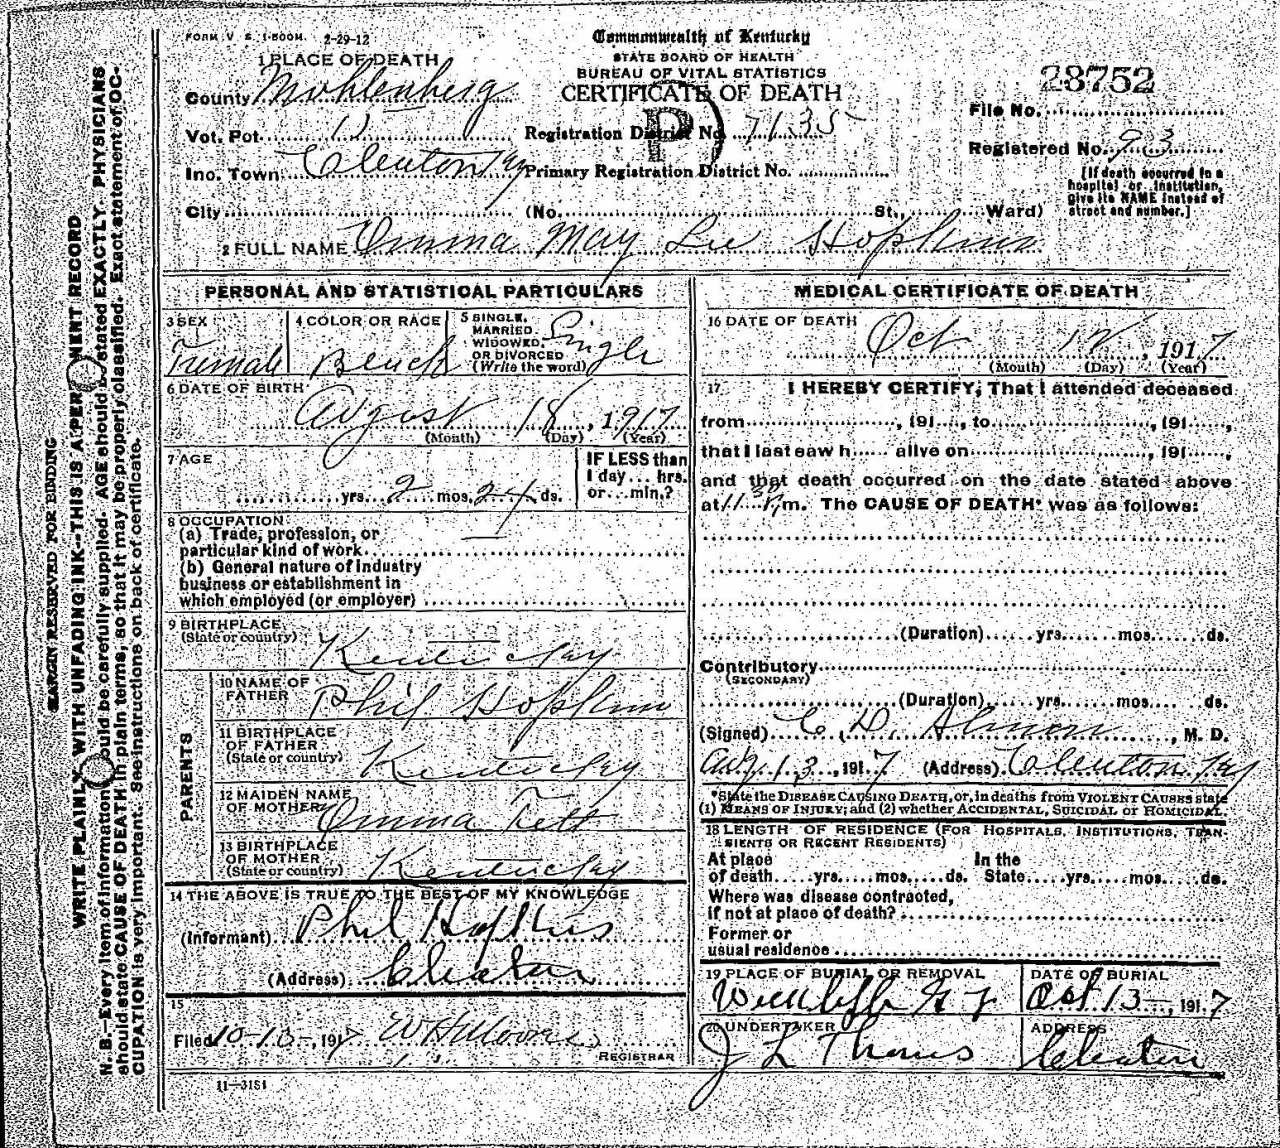 FORM V. S. 1-500M. 2-29-12
Commonwealth of Kentucky
STATE BOARD OF HEALTH
BUREAU OF VITAL STATISTICS
CERTIFICATE OF DEATH
1 PLACE OF DEATH
County Mohlenberg
28752
File No.
Vot. Pct. 15 Registration District No. 7135
Registered No. 93
Inc. Town Cleaton Ky Primary Registration District No.
[If death occurred in a
hospital or institution,
give its NAME instead of
street and number.]
City (No. St., Ward)
2 FULL NAME Emma May Lee Hopkins
PERSONAL AND STATISTICAL PARTICULARS
3 SEX
Female
4 COLOR OR RACE
5 SINGLE,
MARRIED,
WIDOWED,
OR DIVORCED
(Write the word)
Single
6 DATE OF BIRTH
August 18, 1917
(Month) (Day) (Year)
7 AGE
yrs. 2 mos. 24 ds.
IF LESS than
1 day... hrs.
or...min.?
8 OCCUPATION
(a) Trade, profession, or
particular kind of work
(b) General nature of industry
business or establishment in
which employed (or employer)
9 BIRTHPLACE
(State or country)
Kentucky
PARENTS
10 NAME OF
FATHER
Phil Hopkins
11 BIRTHPLACE
OF FATHER
(State or country)
Kentucky
12 MAIDEN NAME
OF MOTHER
Emma
13 BIRTHPLACE
OF MOTHER
(State or country)
Kentucky
14 THE ABOVE IS TRUE TO THE BEST OF MY KNOWLEDGE
(Informant) Phil Hopkins
(Address) Cleaton
15
Filed 10-13-, 1917 W H Moore
REGISTRAR
11-3151
MEDICAL CERTIFICATE OF DEATH
16 DATE OF DEATH
Oct 12, 1917
(Month) (Day) (Year)
17 I HEREBY CERTIFY, That I attended deceased
from , 191 , to , 191 ,
that I last saw h alive on , 191 ,
and that death occurred on the date stated above
at 11 30 m. The CAUSE OF DEATH* was as follows:
(Duration) yrs. mos. ds.
Contributory
(SECONDARY)
(Duration) yrs. mos. ds.
(Signed) C. D. , M. D.
13, 1917 (Address) Cleaton Ky
*State the DISEASE CAUSING DEATH, or, in deaths from VIOLENT CAUSES state
(1) MEANS OF INJURY; and (2) whether ACCIDENTAL, SUICIDAL or HOMICIDAL
18 LENGTH OF RESIDENCE (FOR HOSPITALS, INSTITUTIONS, TRAN-
SIENTS OR RECENT RESIDENTS)
At place In the
of death yrs. mos. ds. State yrs. mos. ds.
Where was disease contracted,
if not at place of death?
Former or
usual residence
19 PLACE OF BURIAL OR REMOVAL
DATE OF BURIAL
Oct 13-, 1917
20 UNDERTAKER
J L Thomas
ADDRESS
Cleaton
MARGIN RESERVED FOR BINDING
WRITE PLAINLY, WITH UNFADING INK--THIS IS A PERMANENT RECORD
N. B.--Every item of information should be carefully supplied. AGE should be stated EXACTLY. PHYSICIANS
should state CAUSE OF DEATH in plain terms, so that it may be properly classified. Exact statement of OC-
CUPATION is very important. See instructions on back of certificate.